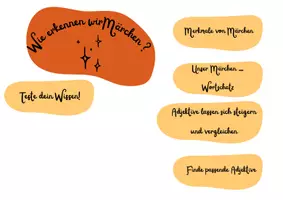 Wie erkennen wir Märchen ?
Teste dein Wissen!
Merkmale von Märchen
Unser Märchen -
Wortschatz
Adjektive lassen sich steigern
und vergleichen
Finde passende Adjektive